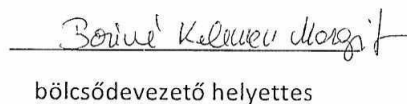 Boriné Kelemen Margit
bölcsődevezető helyettes